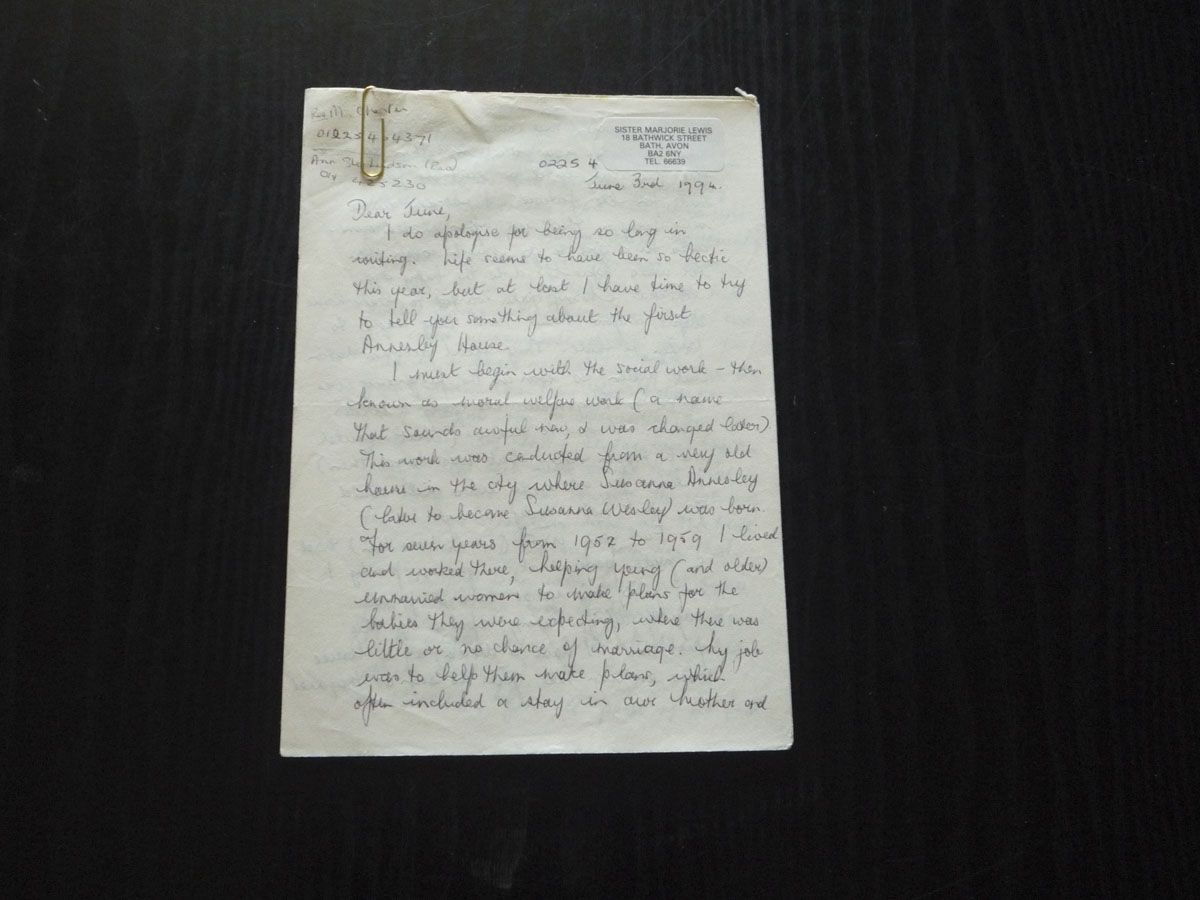 Rev M.
SISTER MARJORIE LEWIS
18 BATHWICK STREET
BATH, AVON
BA2 6NY
TEL. 66639
0225 4
June 3rd 1994.
Ann (Rev)
425230
Dear June,
I do apologise for being so long in
writing. Life seems to have been so hectic
this year, but at last I have time to try
to tell you something about the first
Annesley House.
I must begin with the social work – then
known as moral welfare work (a name
that sounds awful now, & was changed later)
This work was conducted from a very old
house in the city where Susanna Annesley
(later to become Susanna Wesley) was born.
For seven years from 1952 to 1959 I lived
and worked there, helping young (and older)
unmarried women to make plans for the
babies they were expecting, where there was
little or no chance of marriage. My job
was to help them make plans, which
often included a stay in our Mother and